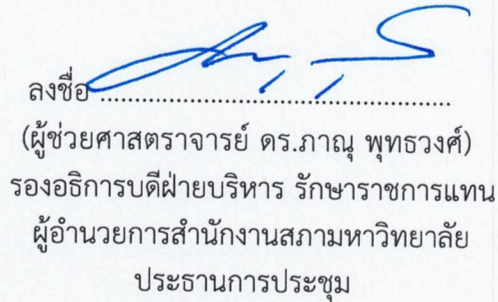 ลงชื่อ ................................................
(ผู้ช่วยศาสตราจารย์ ดร.ภาณุ พุทธวงศ์)
รองอธิการบดีฝ่ายบริหาร รักษาราชการแทน
ผู้อำนวยการสำนักงานสภามหาวิทยาลัย
ประธานการประชุม